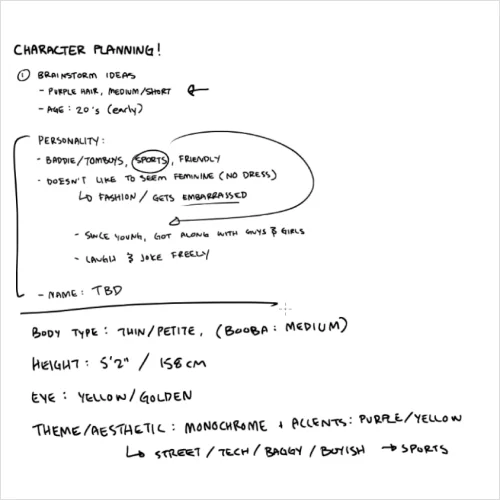 CHARACTER PLANNING!
① BRAINSTORM IDEAS
- PURPLE HAIR, MEDIUM/SHORT
- AGE: 20's (early)
PERSONALITY:
- BADDIE/TOMBUYS, SPORTS, FRIENDLY
- DOESN'T LIKE TO SEEM FEMININE (NO DRESS)
↳ FASHION / GETS EMBARRASSED
- SINCE YOUNG, GOT ALONG WITH GUYS & GIRLS
- LAUGH & JOKE FREELY
- NAME: TBD
BODY TYPE: THIN/PETITE, (BOOBA: MEDIUM)
HEIGHT: 5'2" / 158cm
EYE: YELLOW/GOLDEN
THEME/AESTHETIC: MONOCHROME + ACCENTS: PURPLE/YELLOW
↳ STREET / TECH / BAGGY / BOYISH → SPORTS